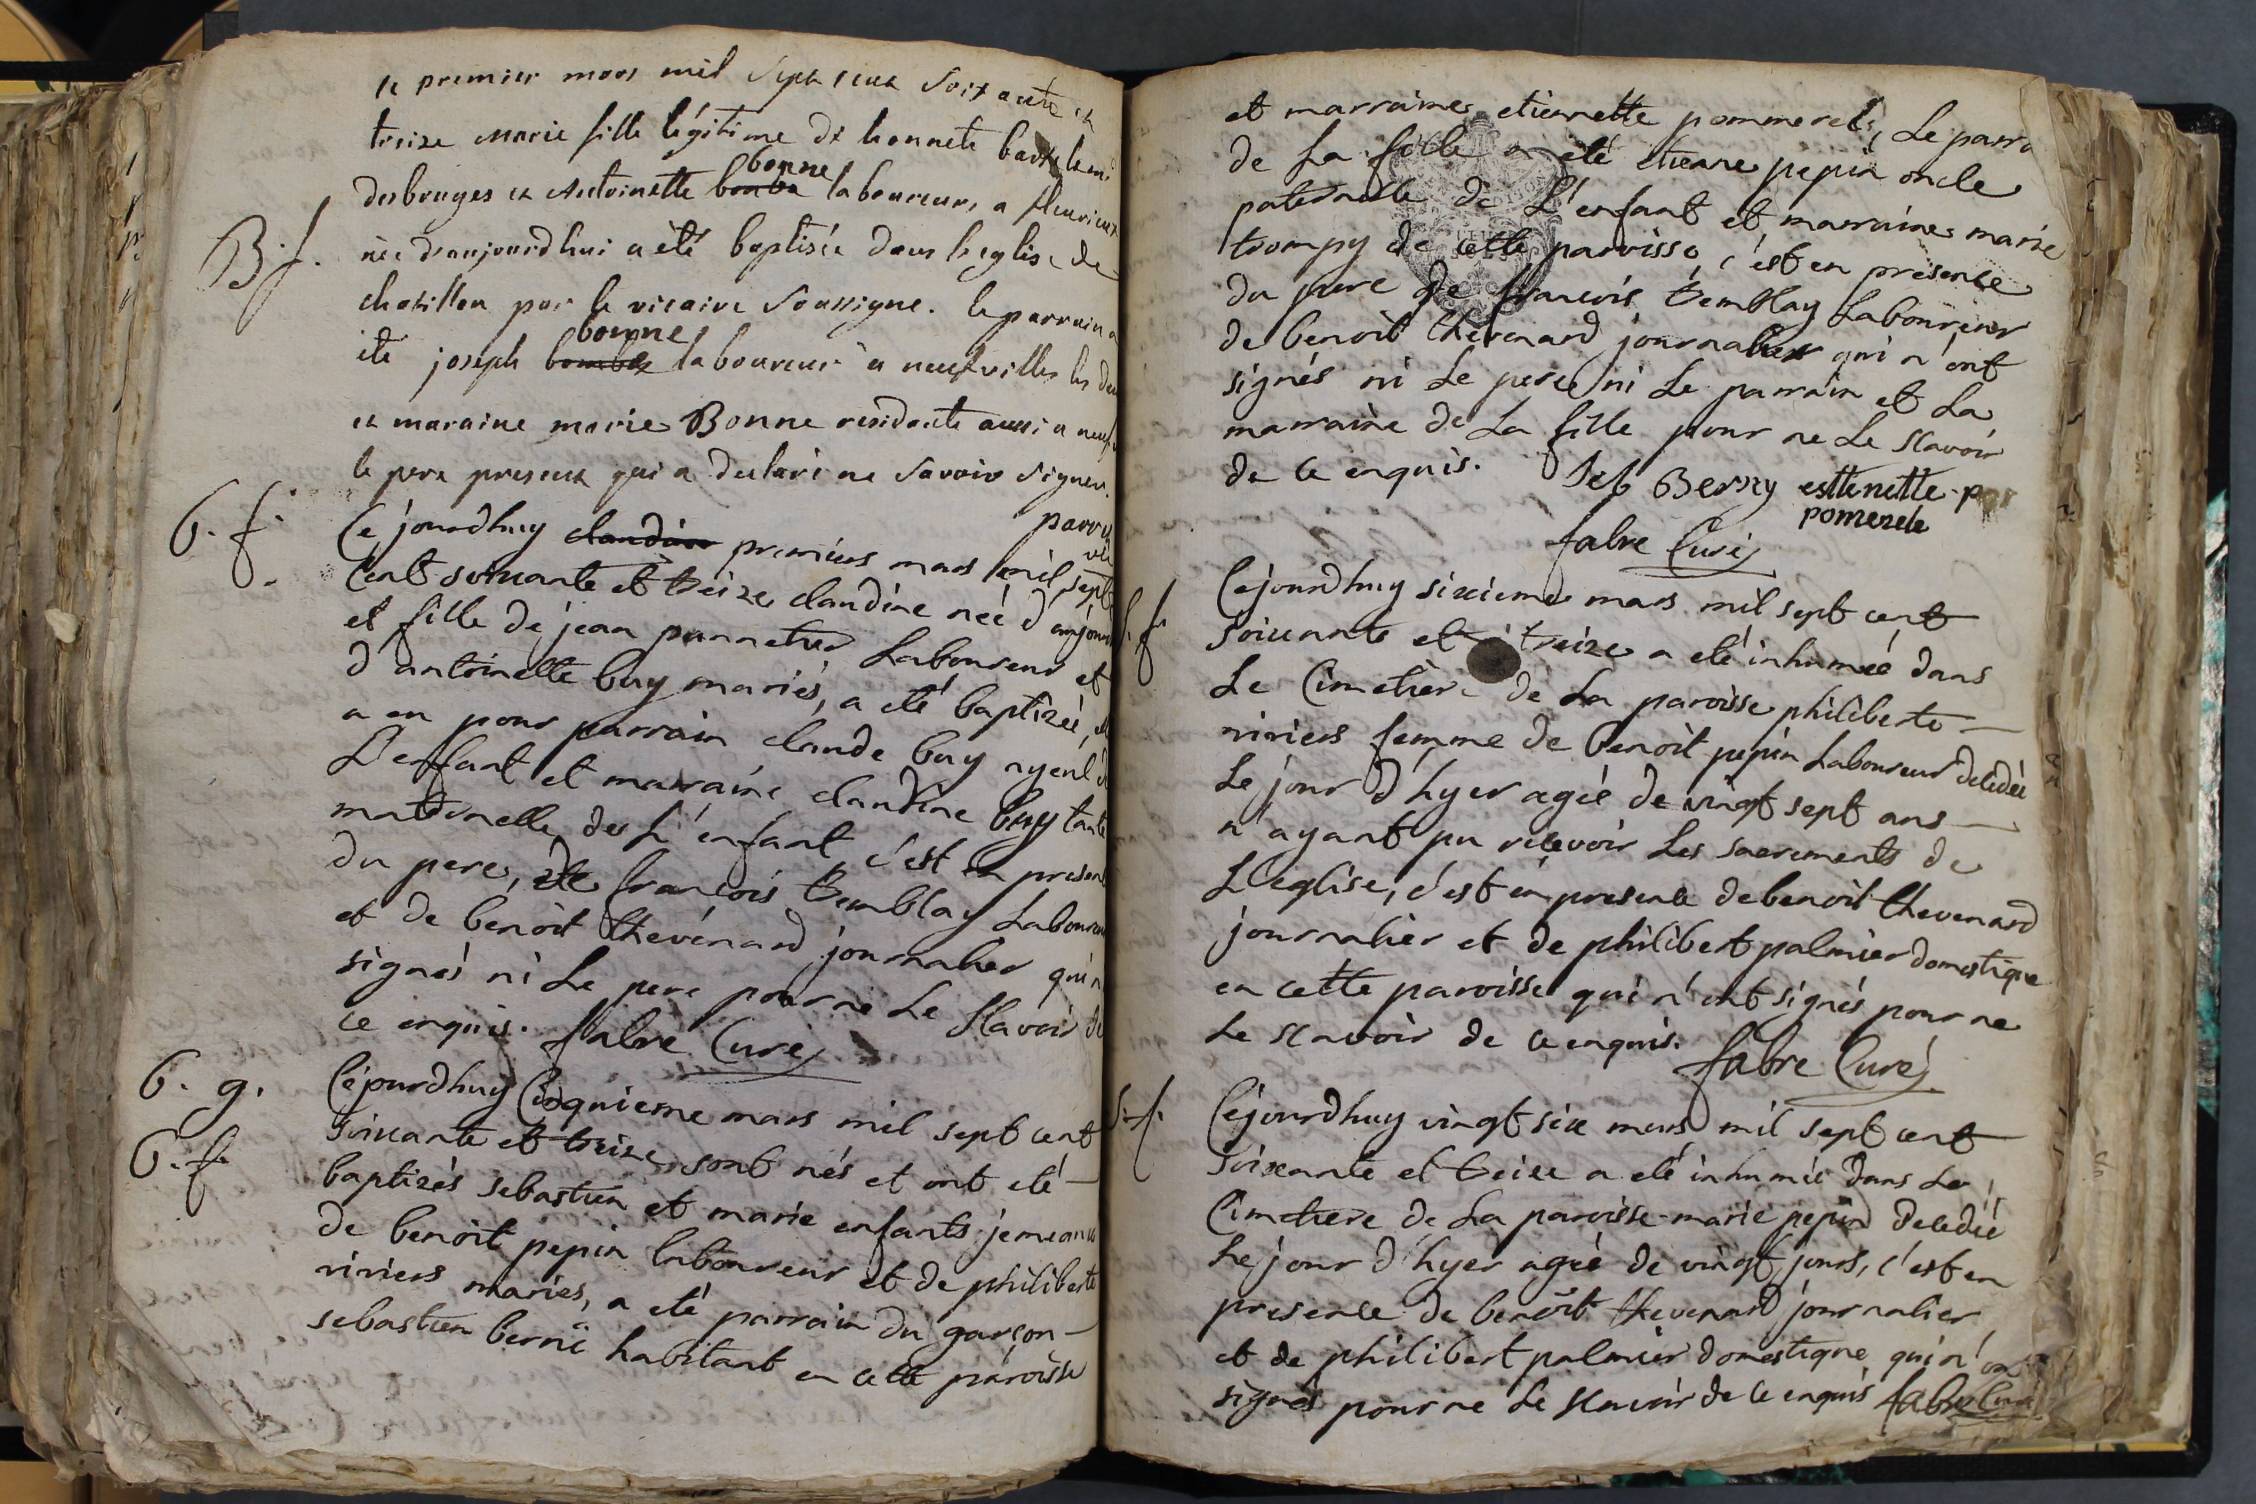 le premier mars mil sept cent soixante et
treize Marie fille légitime de honnete barthelemi
desbruyes et Antoinette bombe bonne laboureurs a fleurieux
B. f. née d'aujourdhui a été baptisée dans l'eglise de
chatillon par le vicaire soussigne. le parrain a
été joseph bombe bonne laboureur a neufvilles les
et maraine marie Bonne residante aussi a neuf
le pere present qui a declaré ne savoir signer.
parroi
b. f. Cejourdhuy claudine premiers mars mil sept
cent soixante et treize claudine neé d'aujour
et fille de jean pannetier Laboureur et
d'antoinette buy mariés, a eté baptizeé, et
a eu pour parrain claude buy ayeul de
L'enfant et marraine claudine buy tante
maternelle de L'enfant, c'est en presen
du pere, de francois tremblay Laboureur
et de benoit thevenard journalier qui n
signés ni Le pere pour ne Le Sçavoir de
ce enquis. fabre Curé
b. g. Cejourdhuy Cinquieme mars mil sept cent
b. f. soixante et treize sont nés et ont eté
baptizés sebastien et marie enfants jemeaux
de benoit pepin laboureur et de philiberte
riviers mariés, a eté parrain du garçon
sebastien berni habitant en cette paroisse
et marraine etiennette pommerel, Le parra
de La fille a eté etienne pepin oncle
paternelle de L'enfant et marraine marie
trompy de cette paroisse, c'est en presence
du pere de francois tremblay Laboureur
de benoit thevenard journalier qui n'ont
signés ni Le pere ni Le parrain et La
marraine de La fille pour ne Le sçavoir
de ce enquis. Seb Berny esttenette por
pomerele
fabre Curé
s. f. Cejourdhuy sixieme mars mil sept cent
soixante et treize a eté inhumeé dans
Le Cimetière de La paroisse philiberte
riviers femme de benoit pepin Laboureur decedée
Le jour d'hyer ageé de vingt sept ans
n'ayant pu recevoir Les sacrements de
L'eglise, c'est en presence de benoit thevenard
journalier et de philibert palmier domestique
en cette paroisse qui n'ont signés pour ne
Le sçavoir de ce enquis. fabre Curé
s. f. Cejourdhuy vingt six mars mil sept cent
soixante et treize a eté inhumée dans Le
Cimetiere de La paroisse marie pepin decedeé
Le jour d'hyer ageé de vingt jours, c'est en
presence de benoit thevenard journalier
et de philibert palmier domestique qui n'on
signés pour ne Le sçavoir de ce enquis fabre Curé